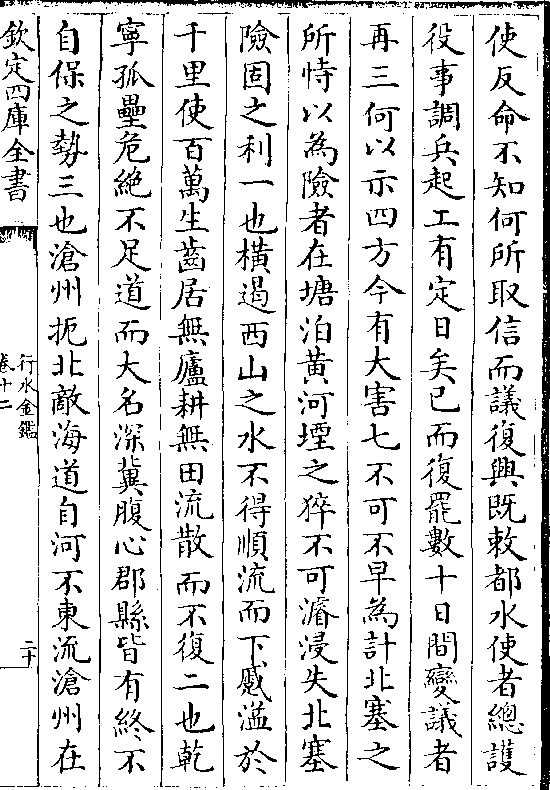 使反命不知何所取信而議復興既敕都水使者總護
役事調兵起工有定日矣已而復罷數十日間變議者
再三何以示四方今有大害七不可不早為計北塞之
所恃以為險者在塘泊黄河堙之猝不可濬浸失北塞
險固之利一也横遏西山之水不得順流而下蹙溢於
千里使百萬生齒居無廬耕無田流散而不復二也乾
寧孤壘危絶不足道而大名深冀腹心郡縣皆有終不
自保之勢三也滄州扼北敵海道自河不東流滄州在
欽定四庫全書
行水金鑑
卷十二
二十